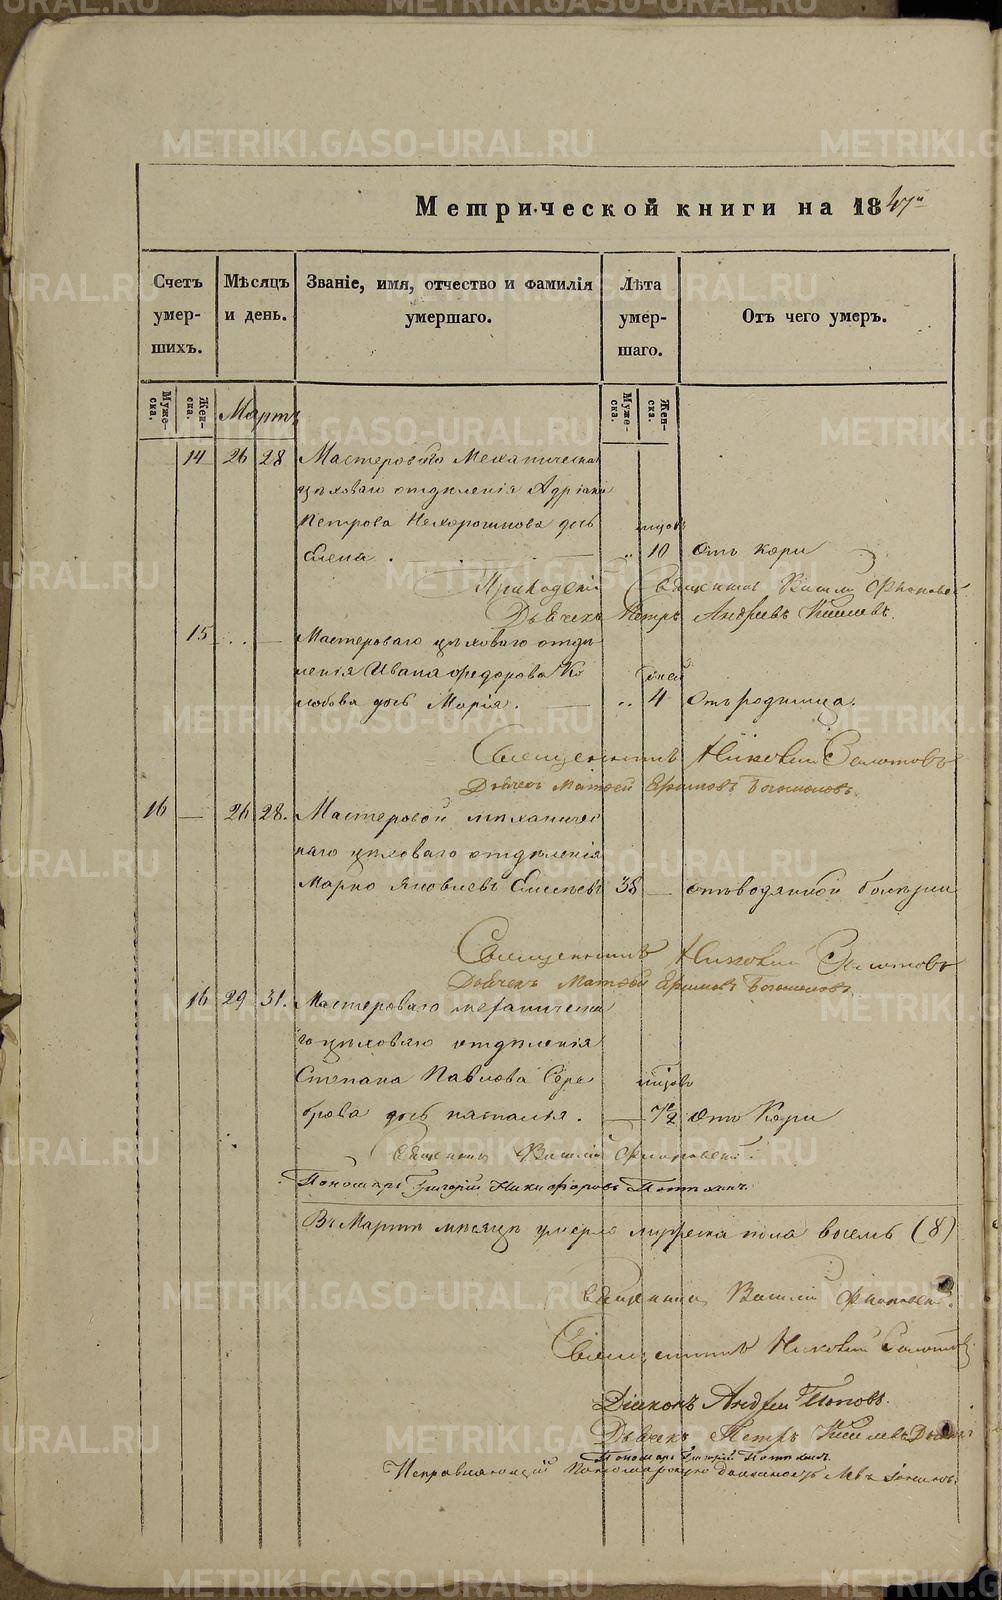 METRIKI.GASO-URAL.RU
Метрической книги на 1847
Счетъ умер- шихъ.
Мѣсяцъ и день.
Званіе, имя, отчество и фамилія умершаго.
Лѣта умер- шаго.
Отъ чего умеръ.
Муже- ска.
Жен- ска.
Мартъ
Муже- ска.
Жен- ска.
14 26 28 Мастероваго Механическа
цѣховаго отдѣленія Адріана
Петрова дочь мѣсяцовъ
Елена. 10 Отъ кори
Приходскій Священникъ Василій Флоровскій
Дьячекъ Петръ Андреевъ Киселевъ.
15 Мастероваго цѣховаго отдѣ-
ленія Ивана Федорова дней
дочь Марія. 4 Отъ родимца.
Священникъ Николай Золотовъ
Дьячекъ Матвей Ефимовъ Богомоловъ.
16 — 26 28. Мастеровой механичес
каго цѣховаго отдѣленія
Марко Яковлевъ 38 — отъ водянной болѣзни
Священникъ Николай Золотовъ
Дьячекъ Матвей Ефимовъ Богомоловъ.
16 29 31. Мастероваго механическа
го цѣховаго отдѣленія
Степана Павлова Сереб мѣсяцовъ
брова дочь Наталья. — 7½ Отъ Кори
Священникъ Василій Флоровскій.
Пономарь Григорій Никифоровъ
Въ Мартѣ мѣсяцѣ умерло мужеска пола восемь (8)
Священникъ Василій Флоровскій.
Священникъ Николай Золотовъ
Діаконъ Андрей Поповъ.
Дьячекъ Петръ Киселевъ
Пономарь Григорій
Исправляющій Пономарскую должность